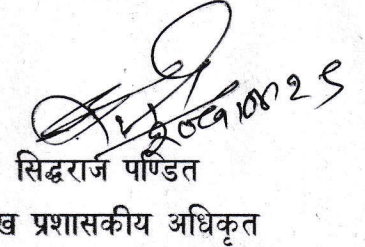 सिद्धराज पण्डित
ख प्रशासकीय अधिकृत